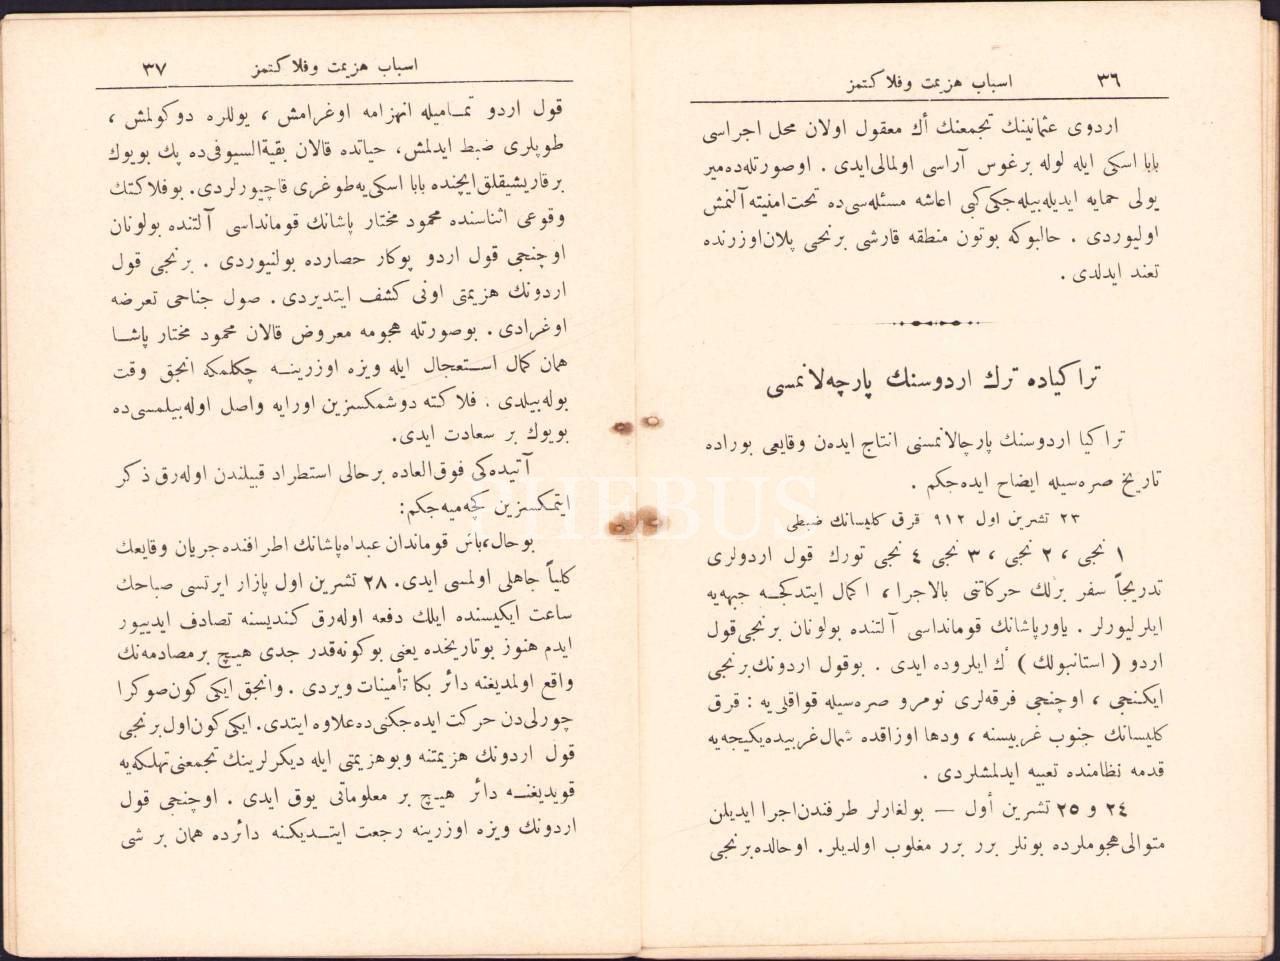 ٣٦ اسباب هزيمت وفلاكتمز
اردوى عثمانينك تجمعنك أك معقول اولان محل اجراسى
بابا اسكى ايله لوله برغوس آراسى اولمالى‌ايدى . اوصورتله‌ده‌مير
يولى حمايه ايديله‌بيله‌جكى‌كبى اعاشه مسئله‌سى‌ده تحت‌امنيته‌آلنمش
اوليوردى . حالبوكه بوتون منطقه قارشى برنجى پلان‌اوزرنده
تعند ايدلدى .
تراكياده ترك اردوسنك پارچه‌لانمسى
تراكيا اردوسنك پارچالانمسنى انتاج ايده‌ن وقايعى بوراده
تاريخ صره‌سيله ايضاح ايده‌جكم .
٢٣ تشرين اول ٩١٢ قرق كليسانك ضبطى
١ نجى ، ٢ نجى ، ٣ نجى ٤ نجى تورك قول اردولرى
تدريجاً سفر برلك حركاتنى بالاجرا ، اكمال ايتدكجه جبهه‌يه
ايلرليورلر . ياورپاشانك قومانداسى آلتنده بولونان برنجى‌قول
اردو ( استانبولك ) أك ايلروده ايدى . بوقول اردونك‌برنجى
ايكنجى ، اوچنجى فرقه‌لرى نومرو صره‌سيله قواقلى‌يه : قرق
كليسانك جنوب غربيسنه ، ودها اوزاقده شمال‌غربيده‌يكيجه‌يه
قدمه نظامنده تعبيه ايدلمشلردى .
٢٤ و ٢٥ تشرين أول — بولغارلر طرفندن‌اجرا ايديلن
متوالى‌هجوملرده بونلر برر برر مغلوب اولديلر. اوحالده‌برنجى
اسباب هزيمت وفلاكتمز ٣٧
قول اردو تماميله انهزامه اوغرامش ، يوللره دوكولمش ،
طوپلرى ضبط ايدلمش، حياتده قالان بقيةالسيوفى‌ده پك بويوك
برقاريشيقلق‌ايچنده بابا اسكى‌يه‌طوغرى قاچيورلردى. بوفلاكتك
وقوعى اثناسنده محمود مختار پاشانك قومانداسى آلتنده بولونان
اوچنجى قول اردو پوكار حصارده بولنيوردى . برنجى قول
اردونك هزيمتى اونى كشف ايتديردى. صول جناحى تعرضه
اوغرادى . بوصورتله هجومه معروض قالان محمود مختار پاشا
همان كمال استعجال ايله ويزه اوزرينه چكلمكه انجق وقت
بوله‌بيلدى . فلاكته دوشمكسزين اورايه واصل اوله‌بيلمسى‌ده
بويوك بر سعادت ايدى.
آتيده‌كى فوق‌العاده برحالى استطراد قبيلندن اوله‌رق ذكر
ايتمكسزين كچه‌ميه‌جكم:
بوحال،باش قوماندان عبداله‌پاشانك اطرافنده‌جريان وقايعك
كلياً جاهلى اولمسى ايدى. ٢٨ تشرين اول پازار ايرتسى صباحك
ساعت ايكيسنده ايلك دفعه اوله‌رق كنديسنه تصادف ايدييور
ايدم هنوز بوتاريخده يعنى بوكونه‌قدر جدى هيچ برمصادمه‌نك
واقع اولمديغنه دائر بكا تأمينات ويردى . وانجق ايكى كون‌صوكرا
چورلى‌دن حركت ايده‌جكنى‌ده‌علاوه ايتدى. ايكى كون‌اول‌برنجى
قول اردونك هزيمتنه وبوهزيمتى ايله ديكرلرينك تجمعنى تهلكه‌يه
قويديغنه دائر هيچ بر معلوماتى يوق ايدى . اوچنجى قول
اردونك ويزه اوزرينه رجعت ايتديكنه دائرده همان بر شى
PHEBUS